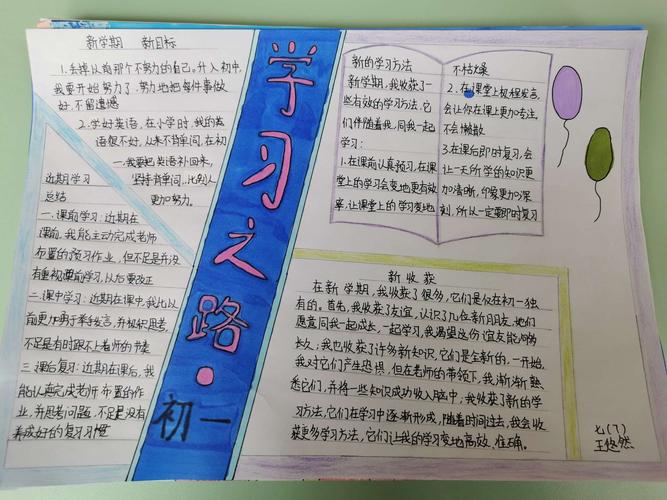 新学期 新目标
1.丢掉从前那个不努力的自己。升入初中,
我要开始努力了,努力地把每件事做
好,不留遗憾
2.学好英语,在小学时,我的英
语很不好,从来不背单词,在初
一,我要把英语补回来,
坚持背单词,比别人
更加努力。
近期学习
总结
一.课前学习:近期在
课前,我能主动完成老师
布置的预习作业,但不足是并没
有重视课前学习,以后要改正
二.课中学习:近期在课中,我比以
前更加勇于举手发言,并积极思考,
不足是有时跟不上老师的节奏
三.课后复习:近期在课后,我
能认真完成老师布置的作
业,并思考问题,不足是没有
养成好的复习习惯
学习之路·初一
新的学习方法
新学期,我收获了一
些有效的学习方法,它
们伴随着我,同我一起
学习:
1.在课前认真预习,在课
堂上的学习会变地更有效
率,让课堂上的学习变地
不枯燥
2.在课堂上积极发言,
会让你在课上更加专注,
不会懒散
3.在课后即时复习,会
让一天所学的知识更
加清晰,印象更加深
刻,所以一定要即时复习
新收获
在新学期,我收获了很多,它们是仅在初一独
有的。首先,我收获了友谊,认识了几位新朋友,她们
愿意同我一起成长,一起学习,我渴望这份谊友能够
长久;我也收获了许多新知识,它们是全新的,一开始,
我对它们产生恐惧,但在老师的带领下,我渐渐熟
悉它们,并将一些知识成功收入脑中,我收获了新的学
习方法,它们在学习中逐渐形成,随着时间过去,我会收
获更多学习方法,它们让我的学习变地高效,准确。
七(7)
王悠然